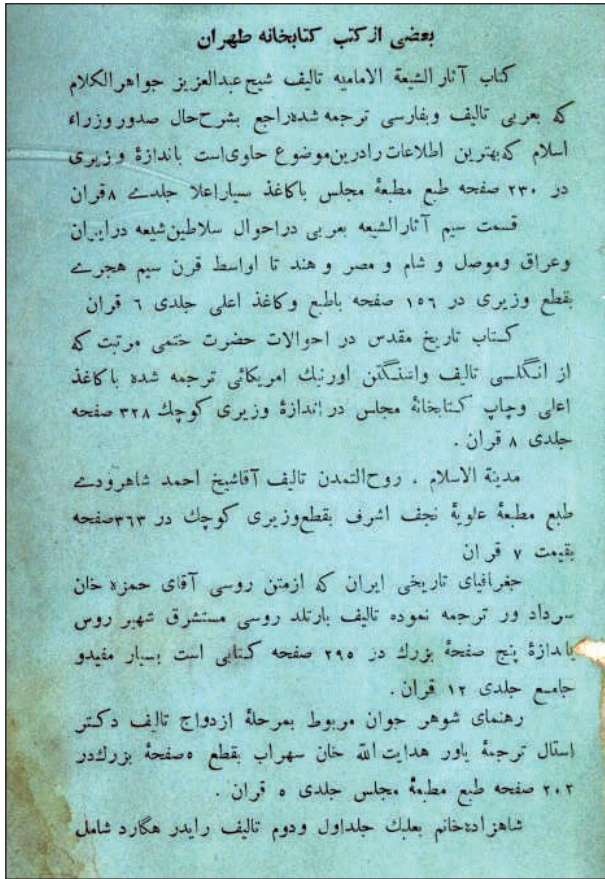 بعضی از کتب کتابخانه طهران
کتاب آثار الشیعة الامامیه تالیف شیخ عبدالعزیز جواهرالکلام
که بعربی تالیف وبفارسی ترجمه شده راجع بشرح حال صدور وزراء
اسلام که بهترین اطلاعات رادرین موضوع حاوی است باندازهٔ وزیری
در ۲۳۰ صفحه طبع مطبعهٔ مجلس باکاغذ بسیار اعلا جلدے ۸ قران
قسمت سیم آثارالشیعه بعربی دراحوال سلاطین شیعه درایران
وعراق وموصل و شام و مصر و هند تا اواسط قرن سیم هجرے
بقطع وزیری در ۱۵۶ صفحه باطبع وکاغذ اعلی جلدی ۶ قران
کتاب تاریخ مقدس در احوالات حضرت ختمی مرتبت که
از انگلسی تالیف واشنگتن اورنیك امریکائی ترجمه شده باکاغذ
اعلی وچاپ کتابخانهٔ مجلس در اندازهٔ وزیری کوچك ۳۲۸ صفحه
جلدی ۸ قران .
مدینة الاسلام . روح التمدن تالیف آقاشیخ احمد شاهرودے
طبع مطبعهٔ علویهٔ نجف اشرف بقطع وزیری کوچك در ۳۶۳ صفحه
بقیمت ۷ قران
جغرافیای تاریخی ایران که ازمتن روسی آقای حمزه خان
سرداد ور ترجمه نموده تالیف بارتلد روسی مستشرق شهیر روس
باندازهٔ پنج صفحهٔ بزرك در ۲۹۵ صفحه کتابی است بسیار مفیدو
جامع جلدی ۱۲ قران .
رهنمای شوهر جوان مربوط بمرحلهٔ ازدواج تالیف دکتر
استال ترجمهٔ یاور هدایت الله خان سهراب بقطع ۵ صفحهٔ بزرك در
۲۰۲ صفحه طبع مطبعهٔ مجلس جلدی ۵ قران .
شاهزاده خانم بعلبك جلد اول ودوم تالیف رایدر هگارد شامل